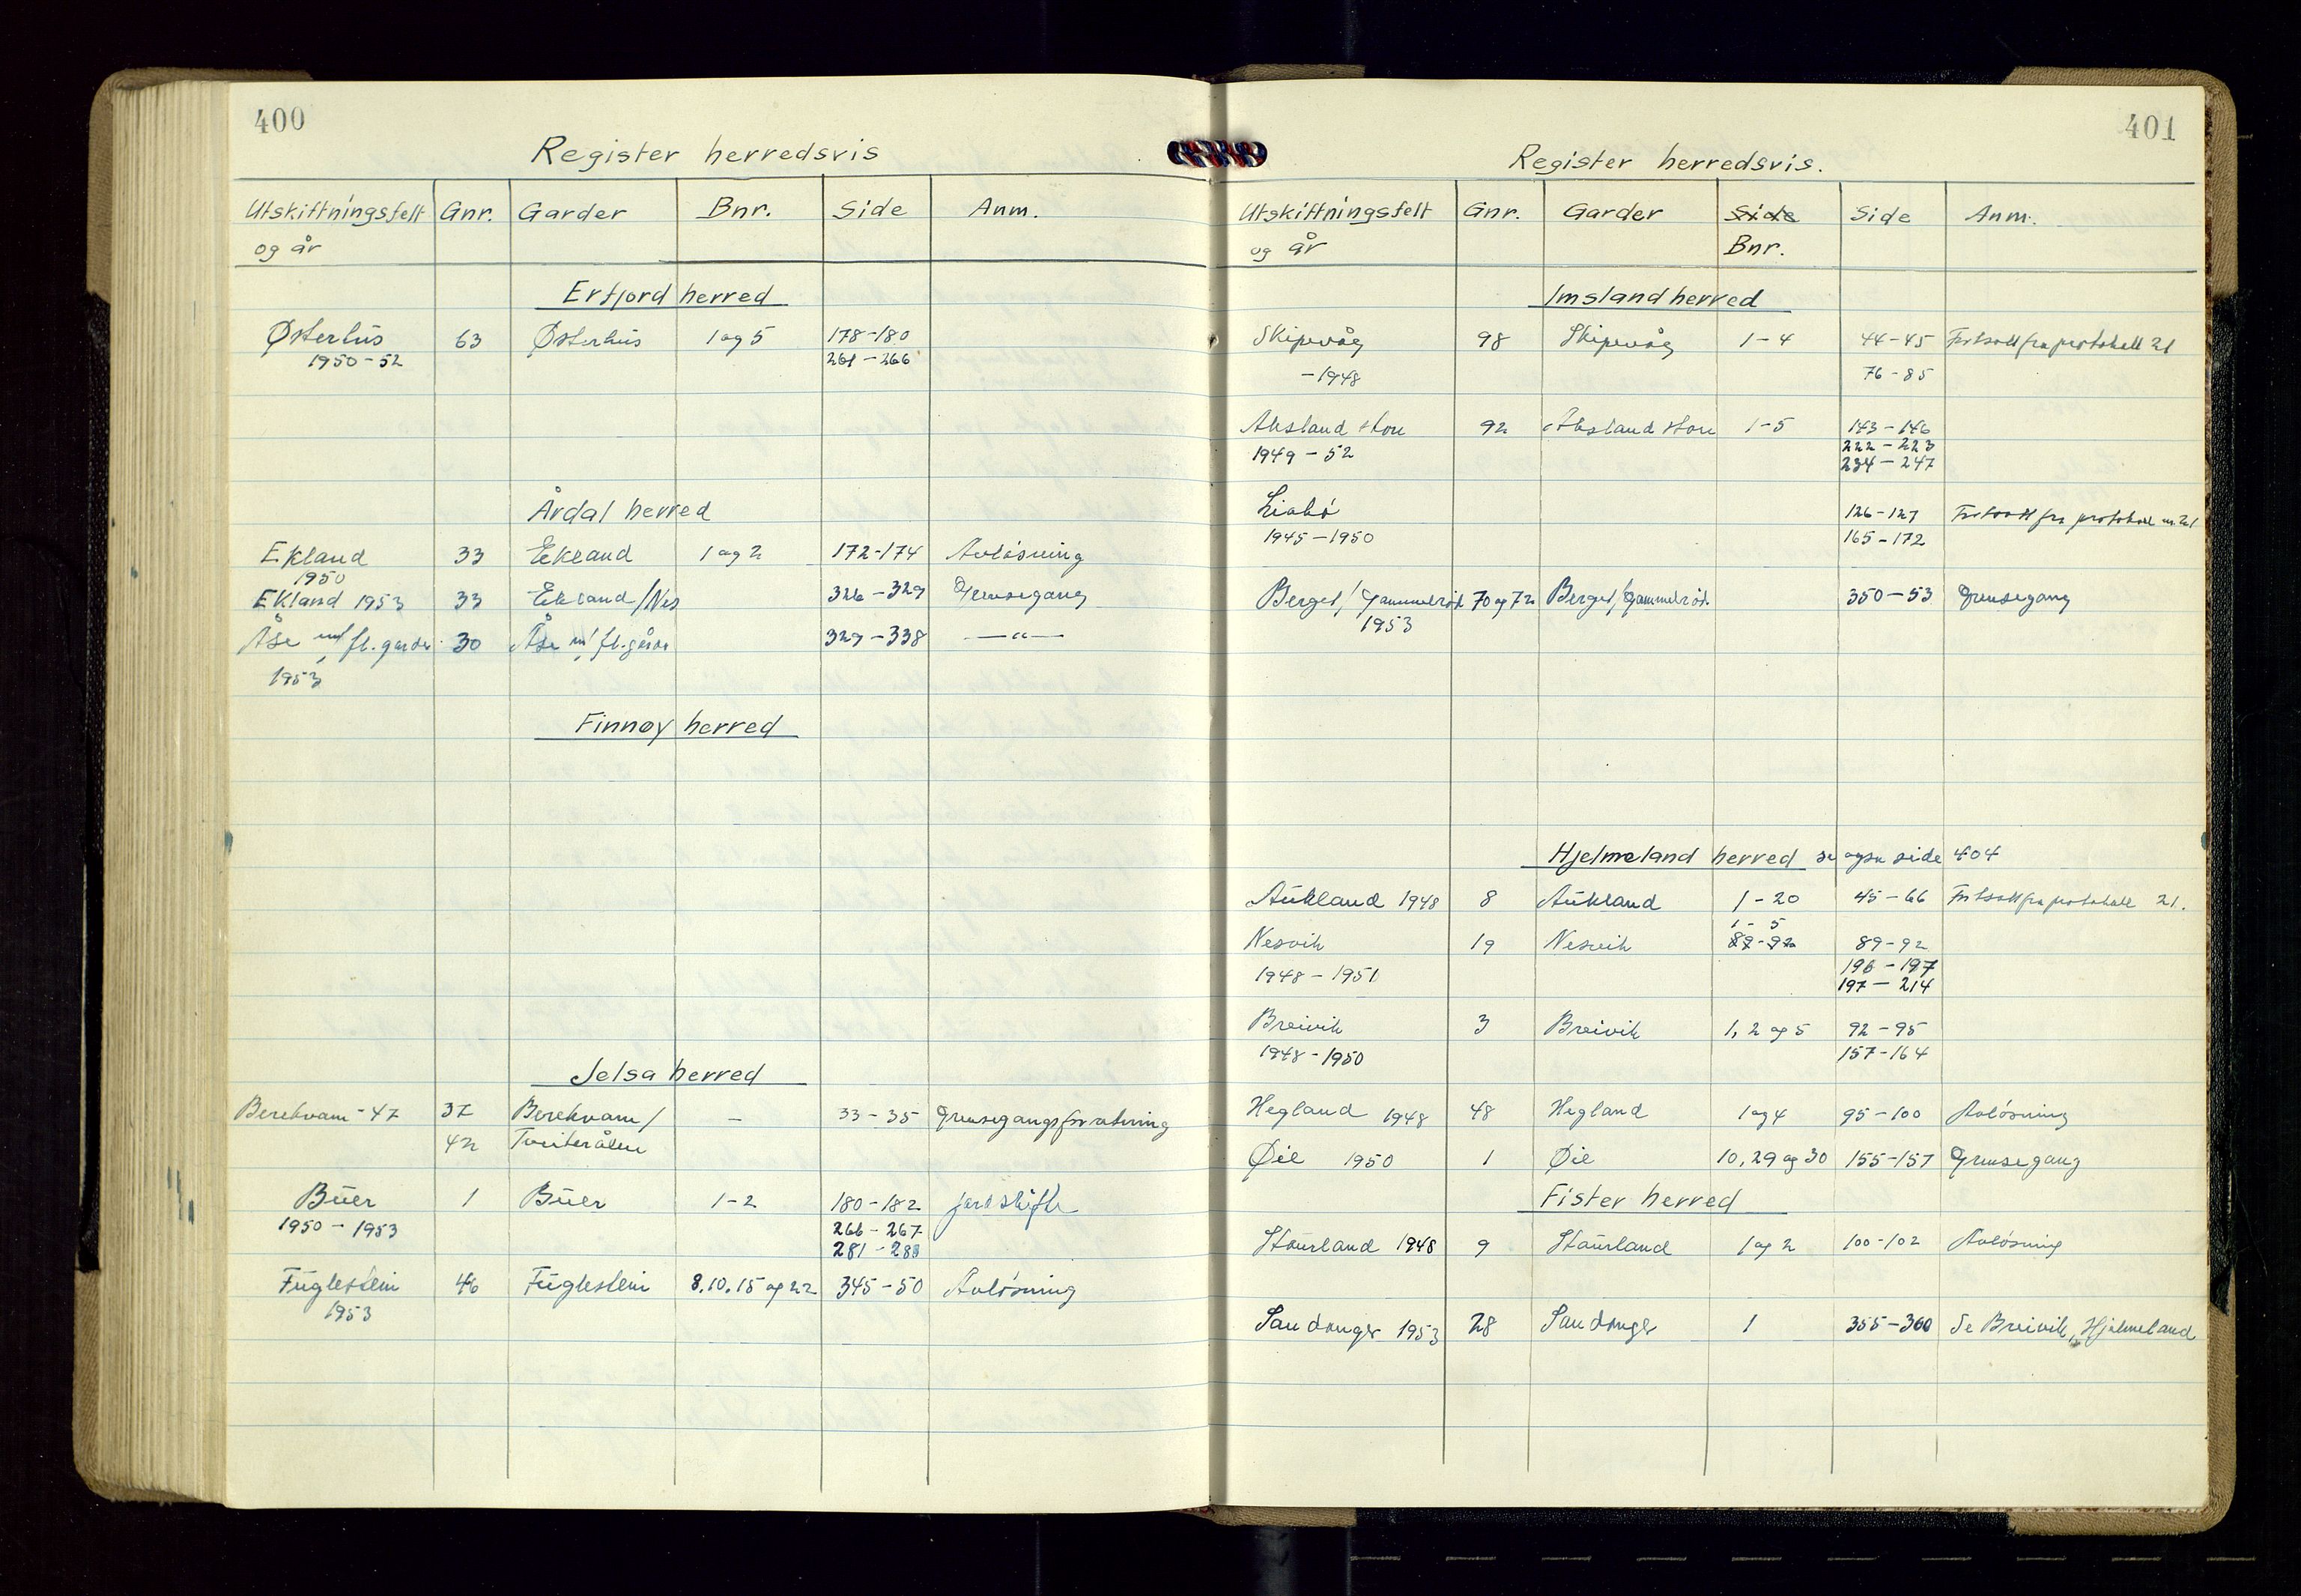 400
Register herredsvis
Utskiftningsfelt Gnr. Garder Bnr. Side Anm.
og år
Erfjord herred
Østerhus 63 Østerhus 1 og 5 178-180
1950-52 261-266
Årdal herred
Ekland 33 Ekland 1 og 2 172-174 Avløsning
1950
Ekland 1953 33 Ekland/Nes 326-329 Grensegang
Åse m/ fl. garder 30 Åse m/ fl. gårder 329-338 —"—
1953
Finnøy herred
Jelsa herred
Berekvam -47 37 Berekvam/ - 33-35 Grensegangsforretning
42 Tveiteråen
Buer 1 Buer 1-2 180-182 jordskifte
1950-1953 266-267
281-288
Fuglestein 46 Fuglestein 8.10.15 og 22 345-50 Avløsning
1953
401
Register herredsvis.
Utskiftningsfelt Gnr. Garder Side Side Anm.
og år Bnr.
Imsland herred
Skipevåg 98 Skipevåg 1-4 44-45 Fortsatt fra protokoll 21
-1948 76-85
Aksland store 92 Aksland store 1-5 143-146
1949-52 222-223
234-247
Liabø 126-127 Fortsatt fra protokoll nr. 21
1945-1950 165-172
Berget/Gammelrød 70 og 72 Berget/Gammelrød 350-53 Grensegang
1953
Hjelmeland herred se også side 404
Aukland 1948 8 Aukland 1-20 45-66 Fortsatt fra protokoll 21.
1-5
Nesvik 19 Nesvik 89-92 89-92
1948-1951 196-197
197-214
Breivik 3 Breivik 1, 2 og 5 92-95
1948-1950 157-164
Hegland 1948 48 Hegland 1 og 4 95-100 Avløsning
Øie 1950 1 Øie 10, 29 og 30 155-157 Grensegang
Fister herred
Staurland 1948 9 Staurland 1 og 2 100-102 Avløsning
Sandanger 1953 28 Sandanger 1 355-360 Se Breivik, Hjelmeland